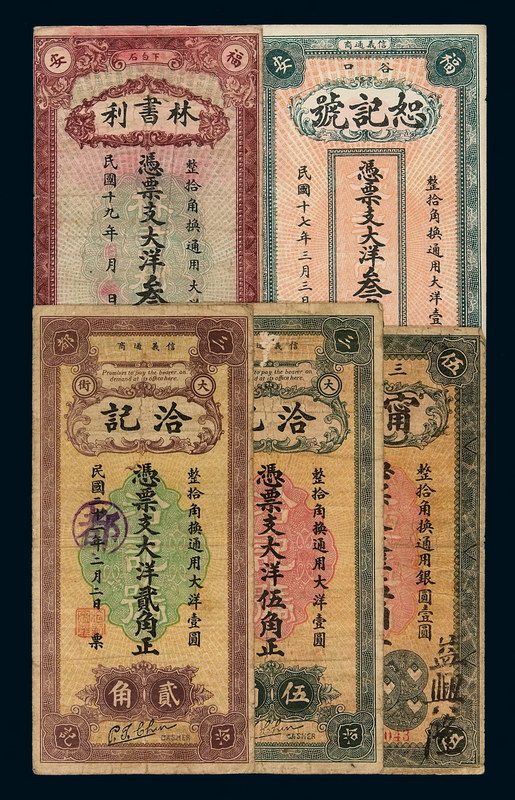 安 下白石 福
林書利
整拾角換通用大洋
憑票支大洋叁
民國十九年 月 日
信義通商
安 谷口 福
恕記號
整拾角換通用大洋壹
憑票支大洋叁
民國十七年三月三日
信義通商
三
Promises to pay the bearer on
demand at its office here.
街 大
洽記
整拾角換通用大洋壹圓
憑票支大洋貳角正
民國 年二月二日 票
貳角
CASHIER
信義通商
三
Promises to pay the bearer on
demand at its office here.
大
洽
整拾角換通用大洋壹圓
憑票支大洋伍角正
伍
CASHIER
三 伍
甯
整拾角換通用銀圓壹圓
益興隆
043